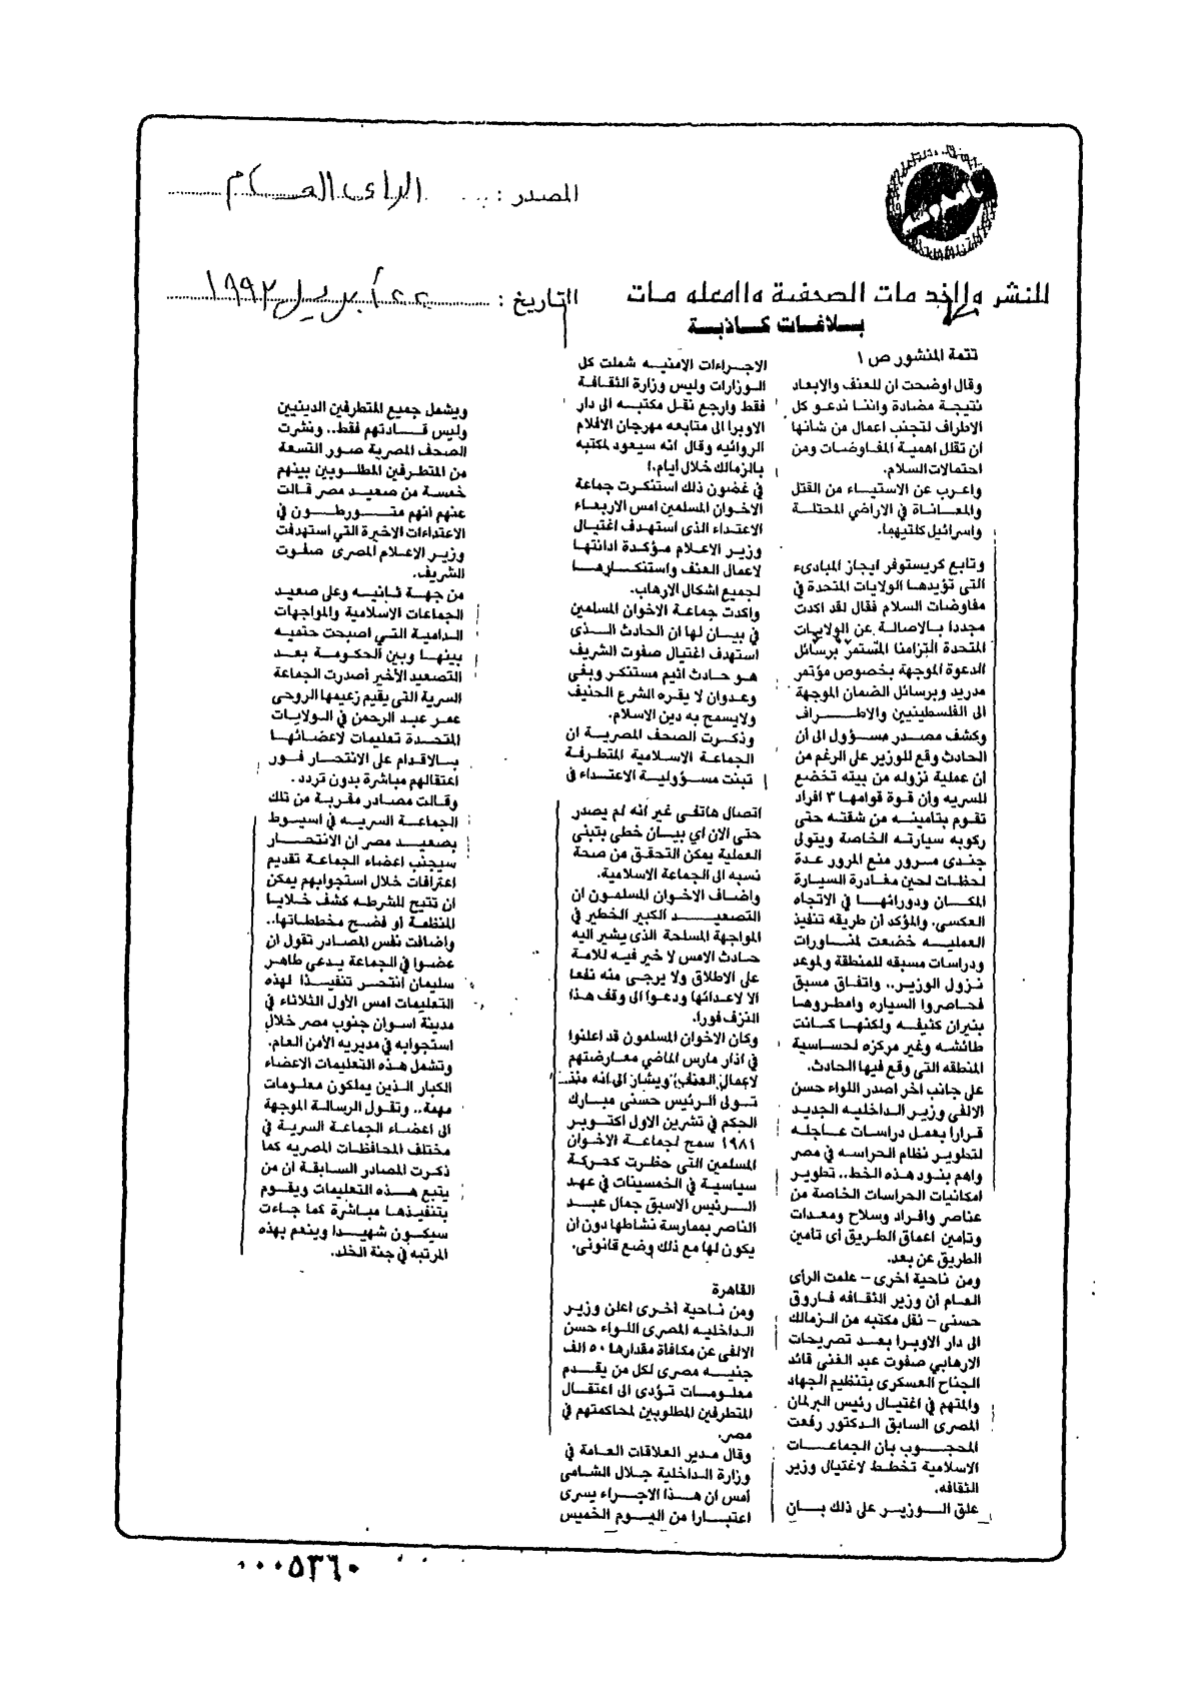 المصدر : الراى العام
للنشر والخدمات الصحفية والمعلومات
التاريخ : ٢٢ أبريل ١٩٩٣
بلاغات كاذبة
تتمة المنشور ص ١
وقال اوضحت ان للعنف والابعاد
نتيجة مضادة واننا ندعو كل
الاطراف لتجنب اعمال من شانها
ان تقلل اهمية المفاوضات ومن
احتمالات السلام.
واعرب عن الاستياء من القتل
والمعاناة في الاراضي المحتلة
واسرائيل كلتيهما.
وتابع كريستوفر ايجاز المبادىء
التى تؤيدها الولايات المتحدة في
مفاوضات السلام فقال لقد اكدت
مجددا بالاصالة عن الولايات
المتحدة التزامنا المستمر برسائل
الدعوة الموجهة بخصوص مؤتمر
مدريد وبرسائل الضمان الموجهة
الى الفلسطينيين والاطراف
وكشف مصدر مسؤول الى أن
الحادث وقع للوزير على الرغم من
ان عملية نزوله من بيته تخضع
للسريه وأن قوة قوامها ٣ افراد
تقوم بتامينه من شقته حتى
ركوبه سيارته الخاصة ويتولى
جندى مرور منع المرور عدة
لحظات لحين مغادرة السيارة
المكان ودورانها في الاتجاه
العكسى. والمؤكد أن طريقه تنفيذ
العمليه خضعت لمناورات
ودراسات مسبقه للمنطقة ولموعد
نزول الوزير.. واتفاق مسبق
فحاصروا السياره وامطروها
بنيران كثيفه ولكنها كانت
طائشه وغير مركزه لحساسية
المنطقه التى وقع فيها الحادث.
على جانب اخر اصدر اللواء حسن
الالفى وزير الداخليه الجديد
قرارا بعمل دراسات عاجله
لتطوير نظام الحراسه في مصر
واهم بنود هذه الخط.. تطوير
امكانيات الحراسات الخاصة من
عناصر وافراد وسلاح ومعدات
وتامين اعماق الطريق أى تامين
الطريق عن بعد.
ومن ناحية اخرى - علمت الرأى
العام أن وزير الثقافه فاروق
حسنى - نقل مكتبه من الزمالك
الى دار الاوبرا بعد تصريحات
الارهابي صفوت عبد الغنى قائد
الجناح العسكرى بتنظيم الجهاد
والمتهم في اغتيال رئيس البرلمان
المصرى السابق الدكتور رفعت
المحجوب بان الجماعات
الاسلامية تخطط لاغتيال وزير
الثقافه.
علق الوزير على ذلك بان
الاجراءات الامنيه شملت كل
الوزارات وليس وزارة الثقافة
فقط وارجع نقل مكتبه الى دار
الاوبرا الى متابعه مهرجان الافلام
الروائيه وقال انه سيعود لمكتبه
بالزمالك خلال ايام.ا
في غضون ذلك استنكرت جماعة
الاخوان المسلمين امس الاربعاء
الاعتداء الذى استهدف اغتيال
وزير الاعلام مؤكدة ادانتها
لاعمال العنف واستنكارها
لجميع اشكال الارهاب.
واكدت جماعة الاخوان المسلمين
في بيان لها ان الحادث الذى
استهدف اغتيال صفوت الشريف
هو حادث اثيم مستنكر وبغى
وعدوان لا يقره الشرع الحنيف
ولايسمح به دين الاسلام.
وذكرت الصحف المصرية ان
الجماعة الاسلامية المتطرفة
تبنت مسؤولية الاعتداء في
اتصال هاتفى غير انه لم يصدر
حتى الان اي بيان خطى بتبنى
العملية يمكن التحقق من صحة
نسبه الى الجماعة الاسلامية.
واضاف الاخوان المسلمون ان
التصعيد الكبير الخطير في
المواجهة المسلحة الذى يشير اليه
حادث الامس لا خير فيه للامة
على الاطلاق ولا يرجى منه نفعا
الا لاعدائها ودعوا الى وقف هذا
النزف فورا.
وكان الاخوان المسلمون قد اعلنوا
في اذار مارس الماضي معارضتهم
لاعمال العنف ويشار الى انه منذ
تولى الرئيس حسنى مبارك
الحكم في تشرين الاول اكتوبر
١٩٨١ سمح لجماعة الاخوان
المسلمين التى حظرت كحركة
سياسية في الخمسينات في عهد
الرئيس الاسبق جمال عبد
الناصر بممارسة نشاطها دون ان
يكون لها مع ذلك وضع قانونى.
القاهرة
ومن ناحية أخرى اعلن وزير
الداخليه المصرى اللواء حسن
الالفى عن مكافاة مقدارها ٥٠ الف
جنيه مصرى لكل من يقدم
معلومات تؤدى الى اعتقال
المتطرفين المطلوبين لمحاكمتهم في
مصر.
وقال مدير العلاقات العامة في
وزارة الداخلية جلال الشامى
أمس ان هذا الاجراء يسرى
اعتبارا من اليوم الخميس
ويشمل جميع المتطرفين الدينيين
وليس قادتهم فقط.. ونشرت
الصحف المصرية صور التسعة
من المتطرفين المطلوبين بينهم
خمسة من صعيد مصر قالت
عنهم انهم متورطون في
الاعتداءات الاخيرة التي استهدفت
وزير الاعلام المصرى صفوت
الشريف.
من جهة ثانيه وعلى صعيد
الجماعات الاسلامية والمواجهات
الدامية التي اصبحت حتميه
بينها وبين الحكومة بعد
التصعيد الأخير أصدرت الجماعة
السرية التى يقيم زعيمها الروحى
عمر عبد الرحمن في الولايات
المتحدة تعليمات لاعضائها
بالاقدام على الانتحار فور
اعتقالهم مباشرة بدون تردد .
وقالت مصادر مقربة من تلك
الجماعة السريه في اسيوط
بصعيد مصر ان الانتحار
سيجنب اعضاء الجماعة تقديم
اعترافات خلال استجوابهم يمكن
ان تتيح للشرطه كشف خلايا
المنظمة أو فضح مخططاتها..
واضافت نفس المصادر تقول أن
عضوا في الجماعة يدعى طاهر
سليمان انتحر تنفيذا لهذه
التعليمات امس الأول الثلاثاء في
مدينة اسوان جنوب مصر خلال
استجوابه في مديريه الأمن العام.
وتشمل هذه التعليمات الاعضاء
الكبار الذين يملكون معلومات
مهمة.. وتقول الرسالة الموجهة
الى اعضاء الجماعة السرية في
مختلف المحافظات المصريه كما
ذكرت المصادر السابقة ان من
يتبع هذه التعليمات ويقوم
بتنفيذها مباشرة كما جاءت
سيكون شهيدا وينعم بهذه
المرتبه في جنة الخلد.
٠٠٠٥٣٦٠